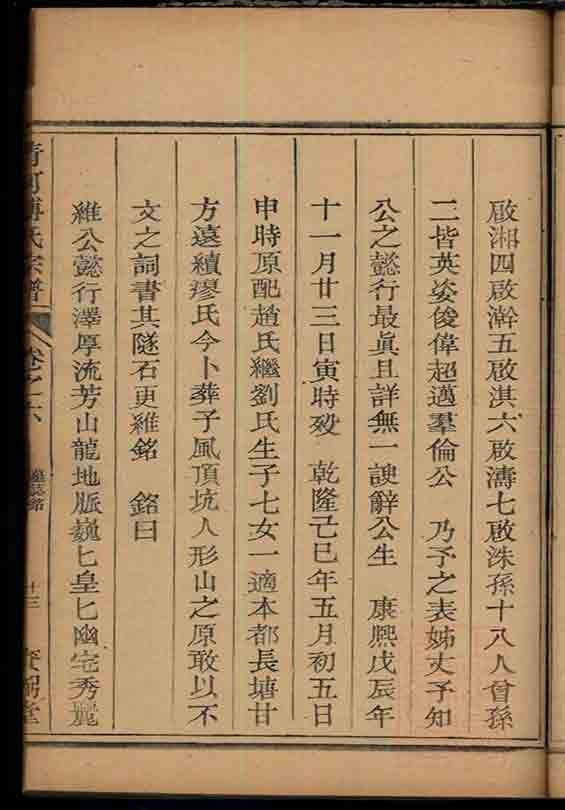 啟湘四啟澣五啟淇六啟濤七啟洙孫十八人曾孫
二皆英姿俊偉超邁羣倫公　乃予之表姊丈予知
公之懿行最眞且詳無一諛辭公生　康熙戊辰年
十一月廿三日寅時歿　乾隆己巳年五月初五日
申時原配趙氏繼劉氏生子七女一適本都長塘甘
方遠續廖氏今卜葬于風頂坑人形山之原敢以不
文之詞書其隧石更維銘　銘曰
維公懿行澤厚流芳山龍地脈巍匕皇匕幽宅秀麗
清河傅氏宗譜　卷之六　墓誌銘　十三